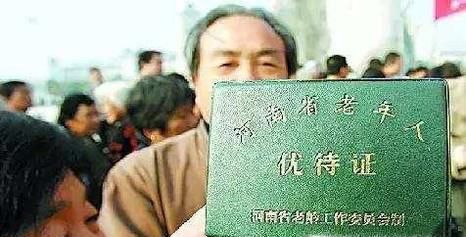 河南省老年人
优待证
河南省老龄工作委员会制